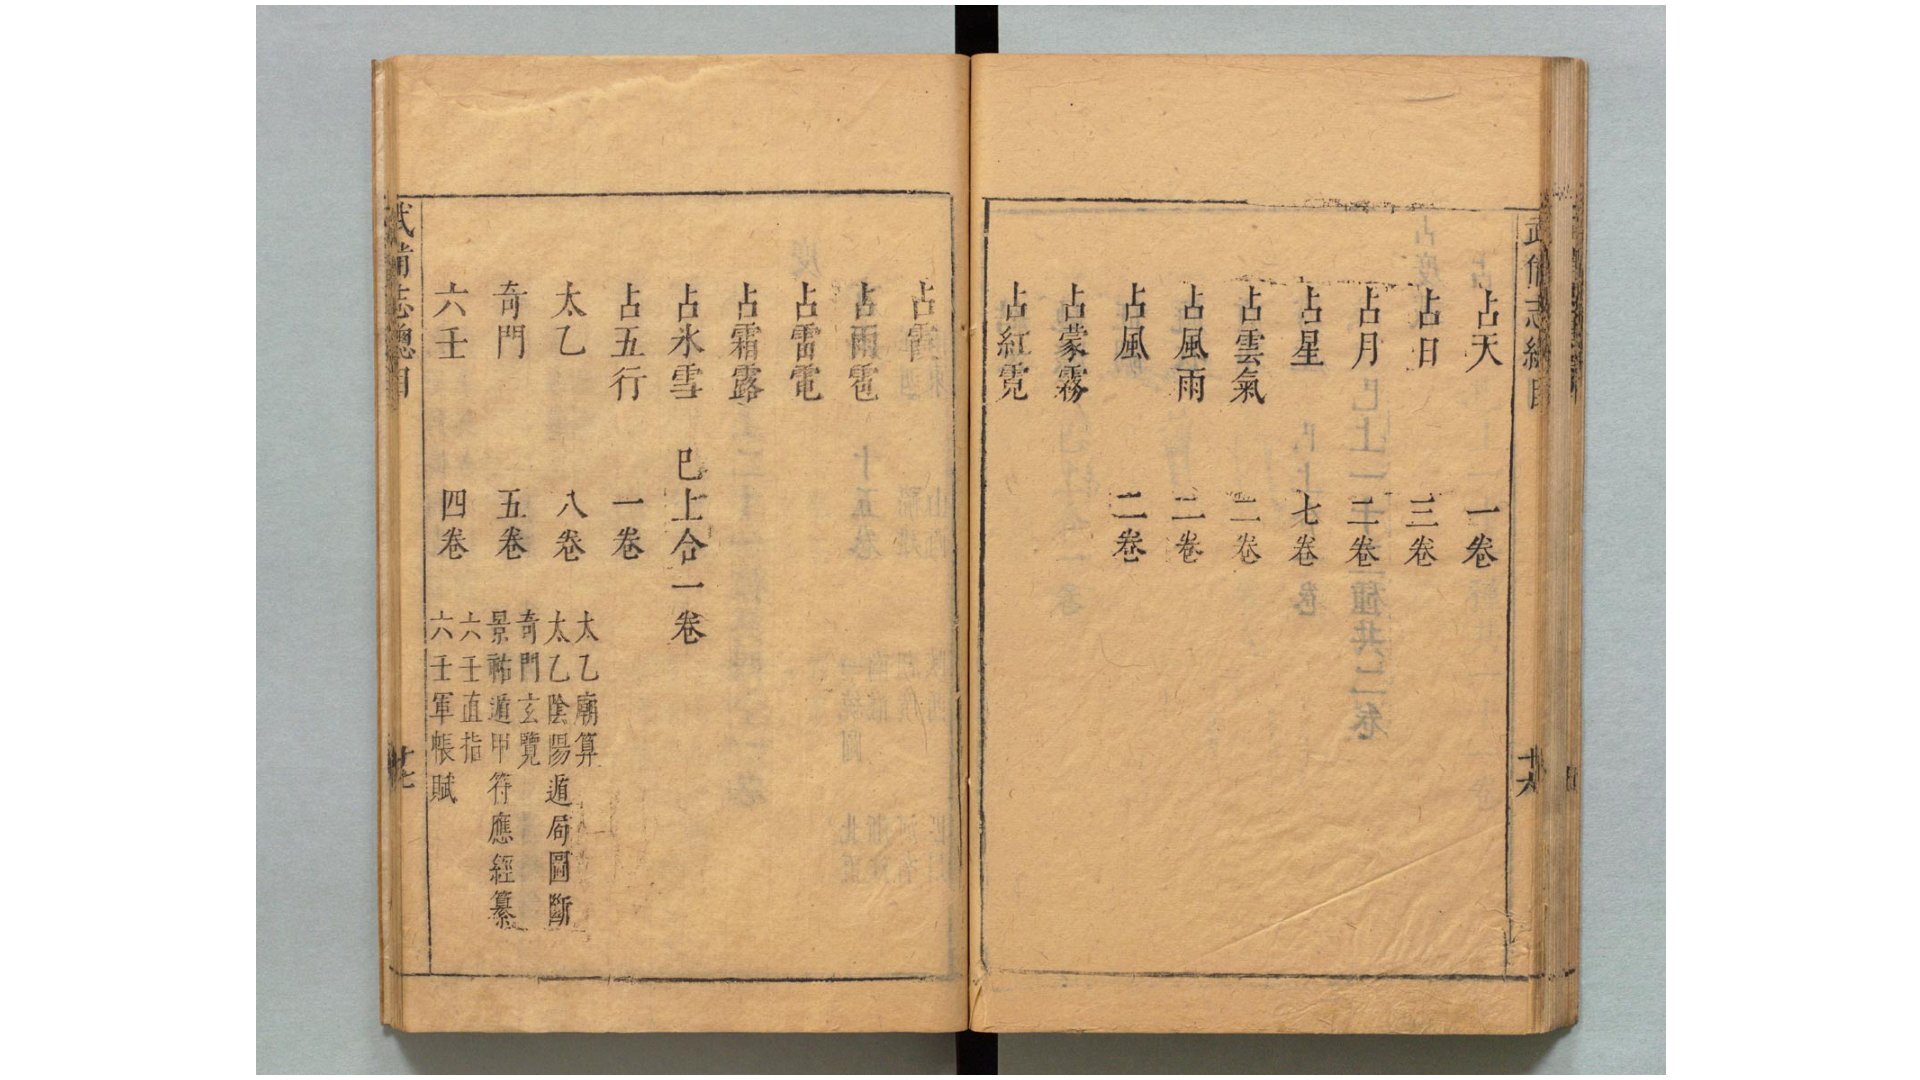 武備志總目
十六
占天 一卷
占日 三卷
占月 二卷
占星 七卷
占雲氣 二卷
占風雨 二卷
占風 二卷
占蒙霧
占紅霓
占霞
占雨雹
占雷電
占霜露
占氷雪 巳上合一卷
占五行 一卷
太乙 八卷 太乙廟算
太乙陰陽遁局圖斷
奇門 五卷 奇門玄覽
景祐遁甲符應經纂
六壬 四卷 六壬直指
六壬軍帳賦
武備志總目
十七